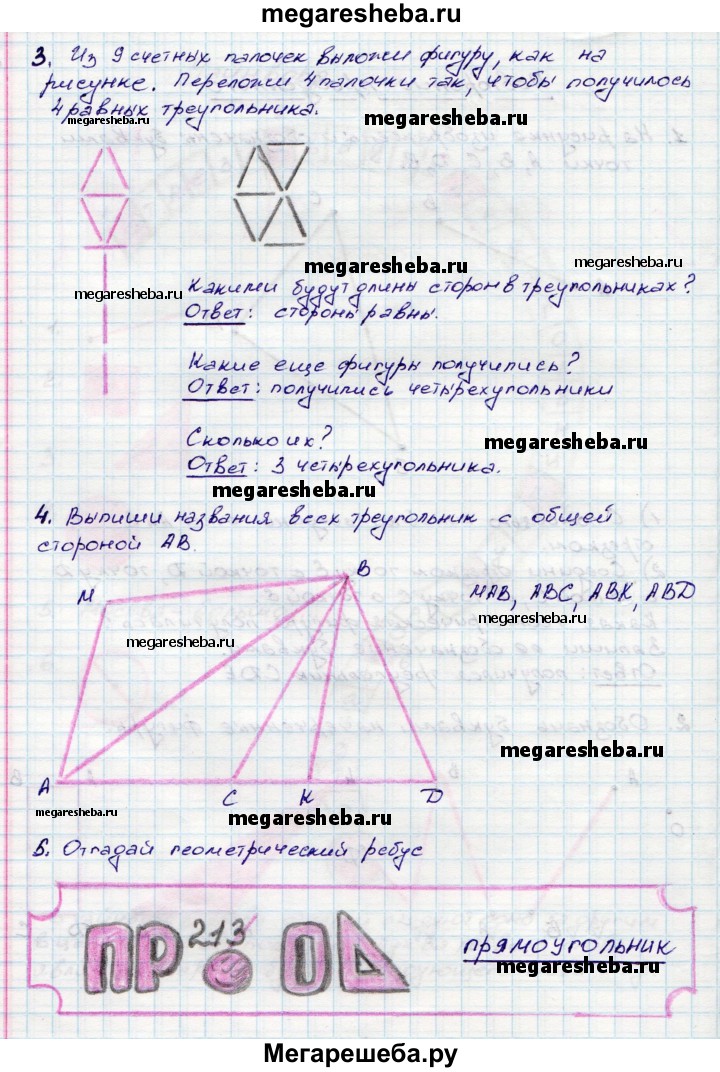 megaresheba.ru
3. Из 9 счетных палочек выложи фигуру, как на
рисунке. Переложи 4 палочки так, чтобы получилось
4 равных треугольника.
megaresheba.ru
megaresheba.ru
megaresheba.ru
megaresheba.ru
megaresheba.ru
Какими будут длины сторон в треугольниках?
Ответ: стороны равны.
Какие еще фигуры получились?
Ответ: получились четырехугольники
Сколько их?
megaresheba.ru
Ответ: 3 четырехугольника.
megaresheba.ru
4. Выпиши названия всех треугольник с общей
стороной АВ.
В
М
МАВ, АВС, АВК, АВD
megaresheba.ru
megaresheba.ru
А
С
К
D
megaresheba.ru
megaresheba.ru
5. Отгадай геометрический ребус
ПР 213 О
прямоугольник
megaresheba.ru
Мегарешеба.ру